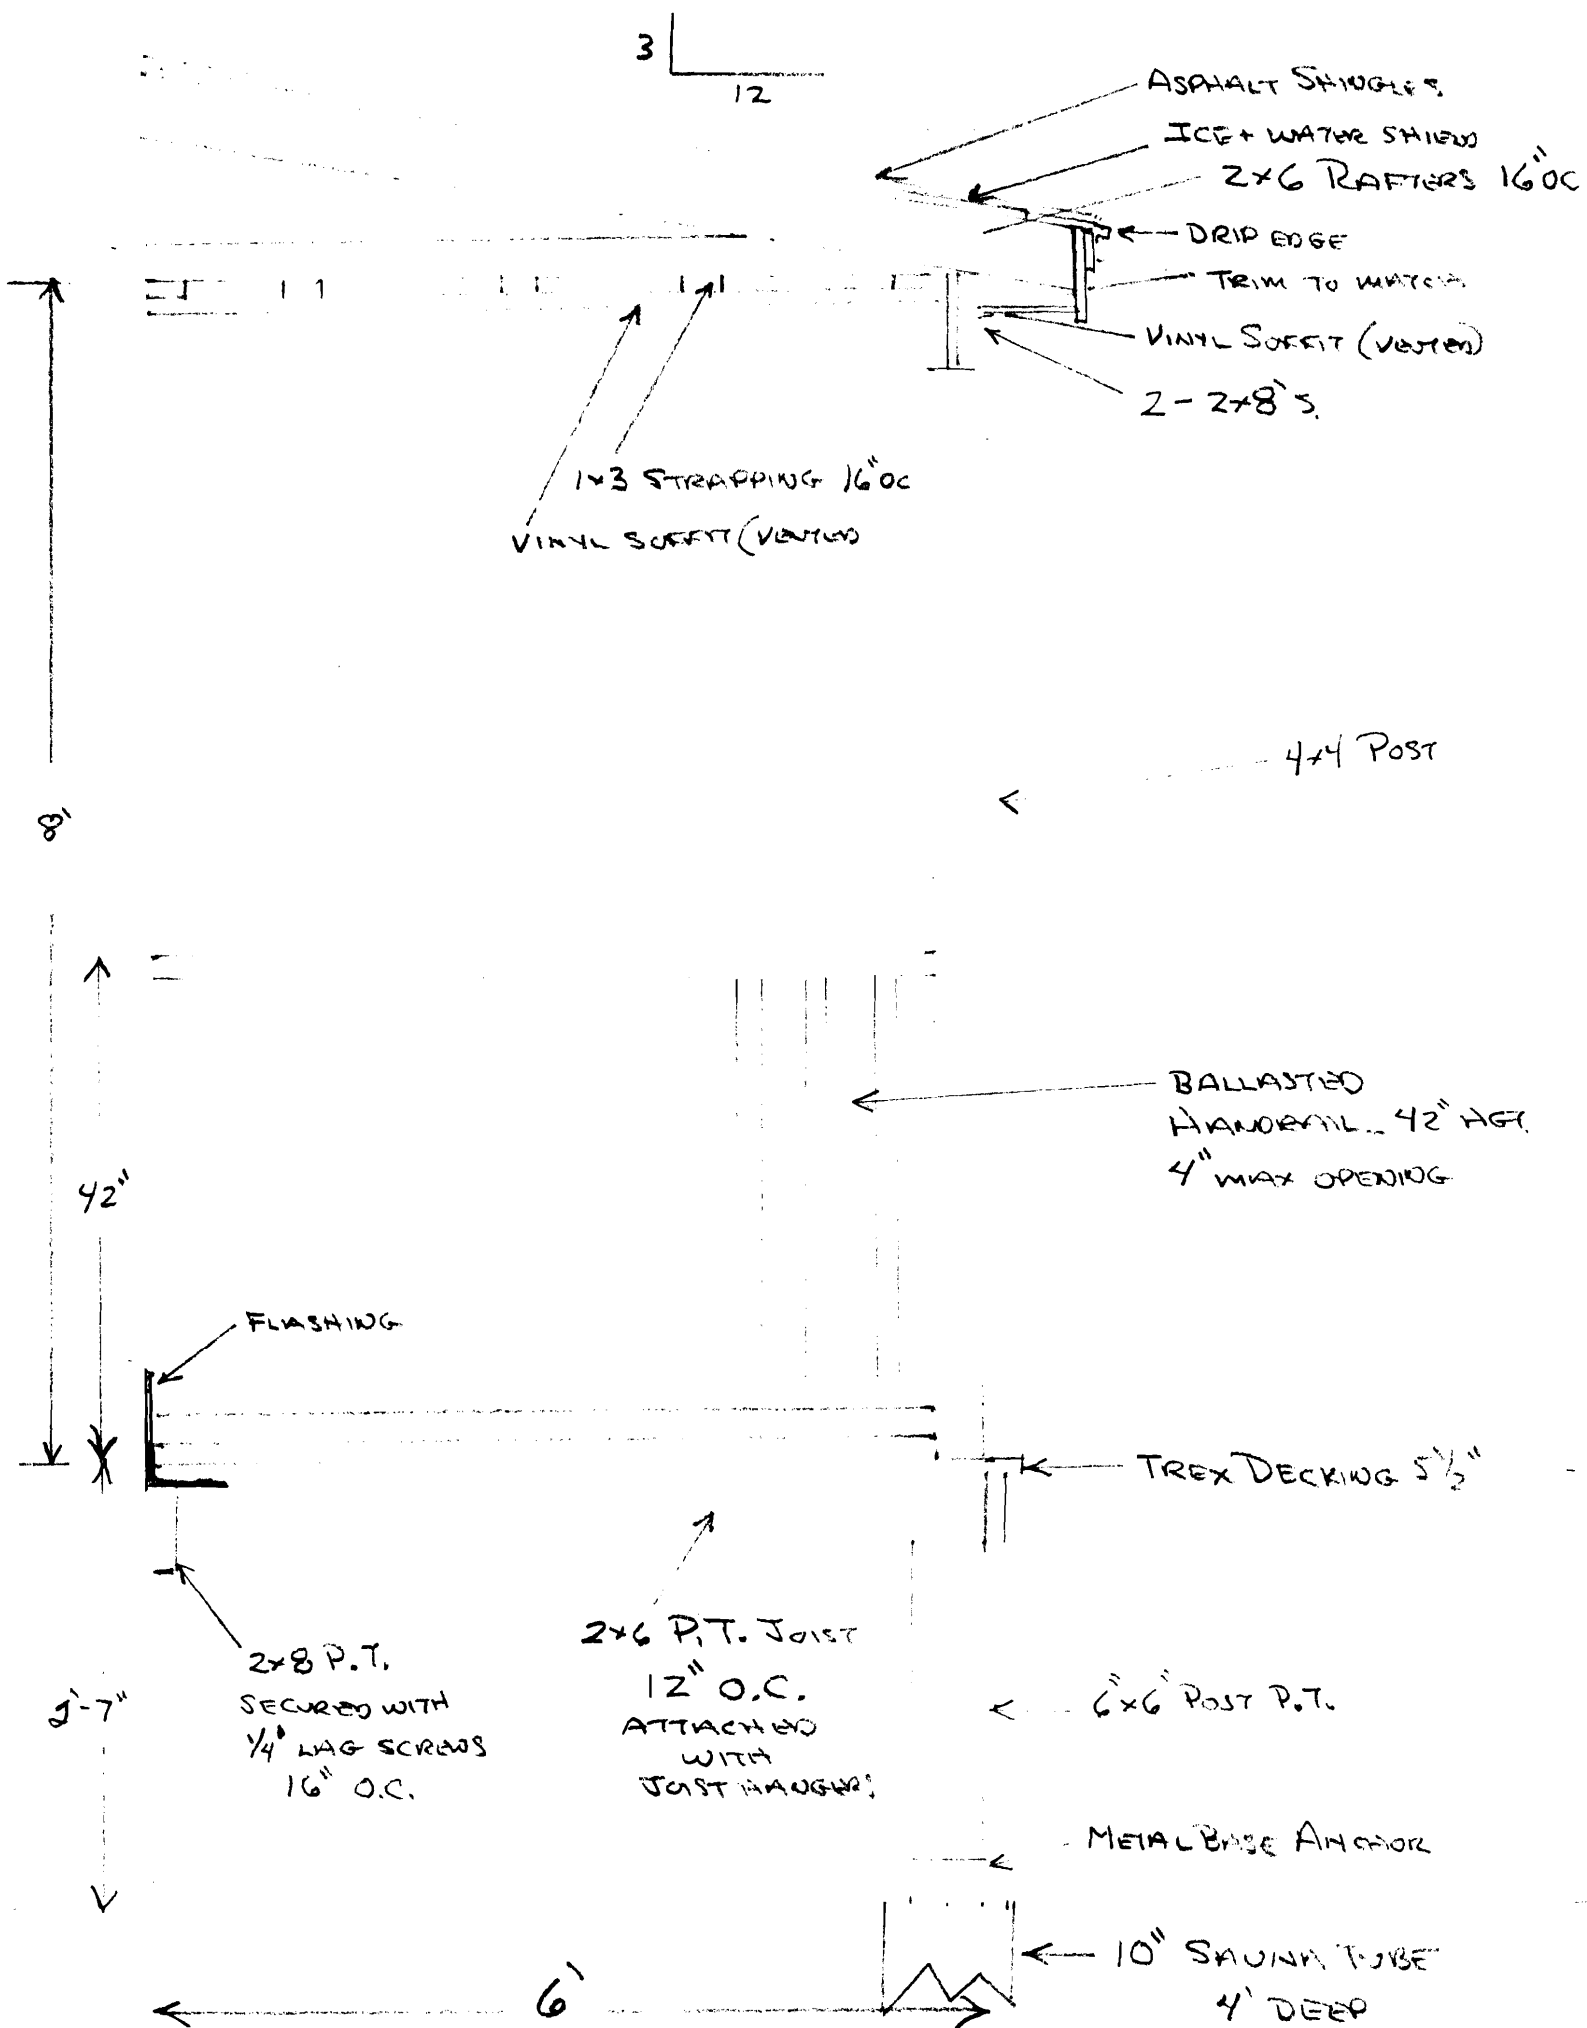 3
12
ASPHALT SHINGLES
ICE + WATER SHIELD
2x6 RAFTERS 16" OC
DRIP EDGE
TRIM TO MATCH
VINYL SOFFIT (VENTED)
2 - 2x8's.
1x3 STRAPPING 16" OC
VINYL SOFFIT (VENTED
4x4 POST
8'
BALLASTED
HANDRAIL - 42" HGT.
4" MAX OPENING
42"
FLASHING
TREX DECKING 5 1/2"
2x8 P.T.
SECURED WITH
1/4" LAG SCREWS
16" O.C.
2x6 P.T. JOIST
12" O.C.
ATTACHED
WITH
JOIST HANGERS
2'-7"
6"x6" POST P.T.
METAL BASE ANCHOR
10" SAUNA TUBE
4' DEEP
6'